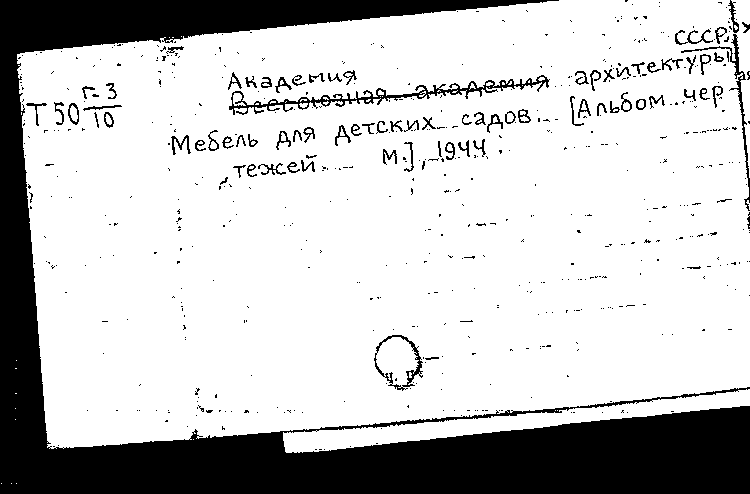 СССР
Академия
Всесоюзная академия архитектуры
Т 50 г-3/10
Мебель для детских садов. [Альбом чер-
тежей. М.], 1944.